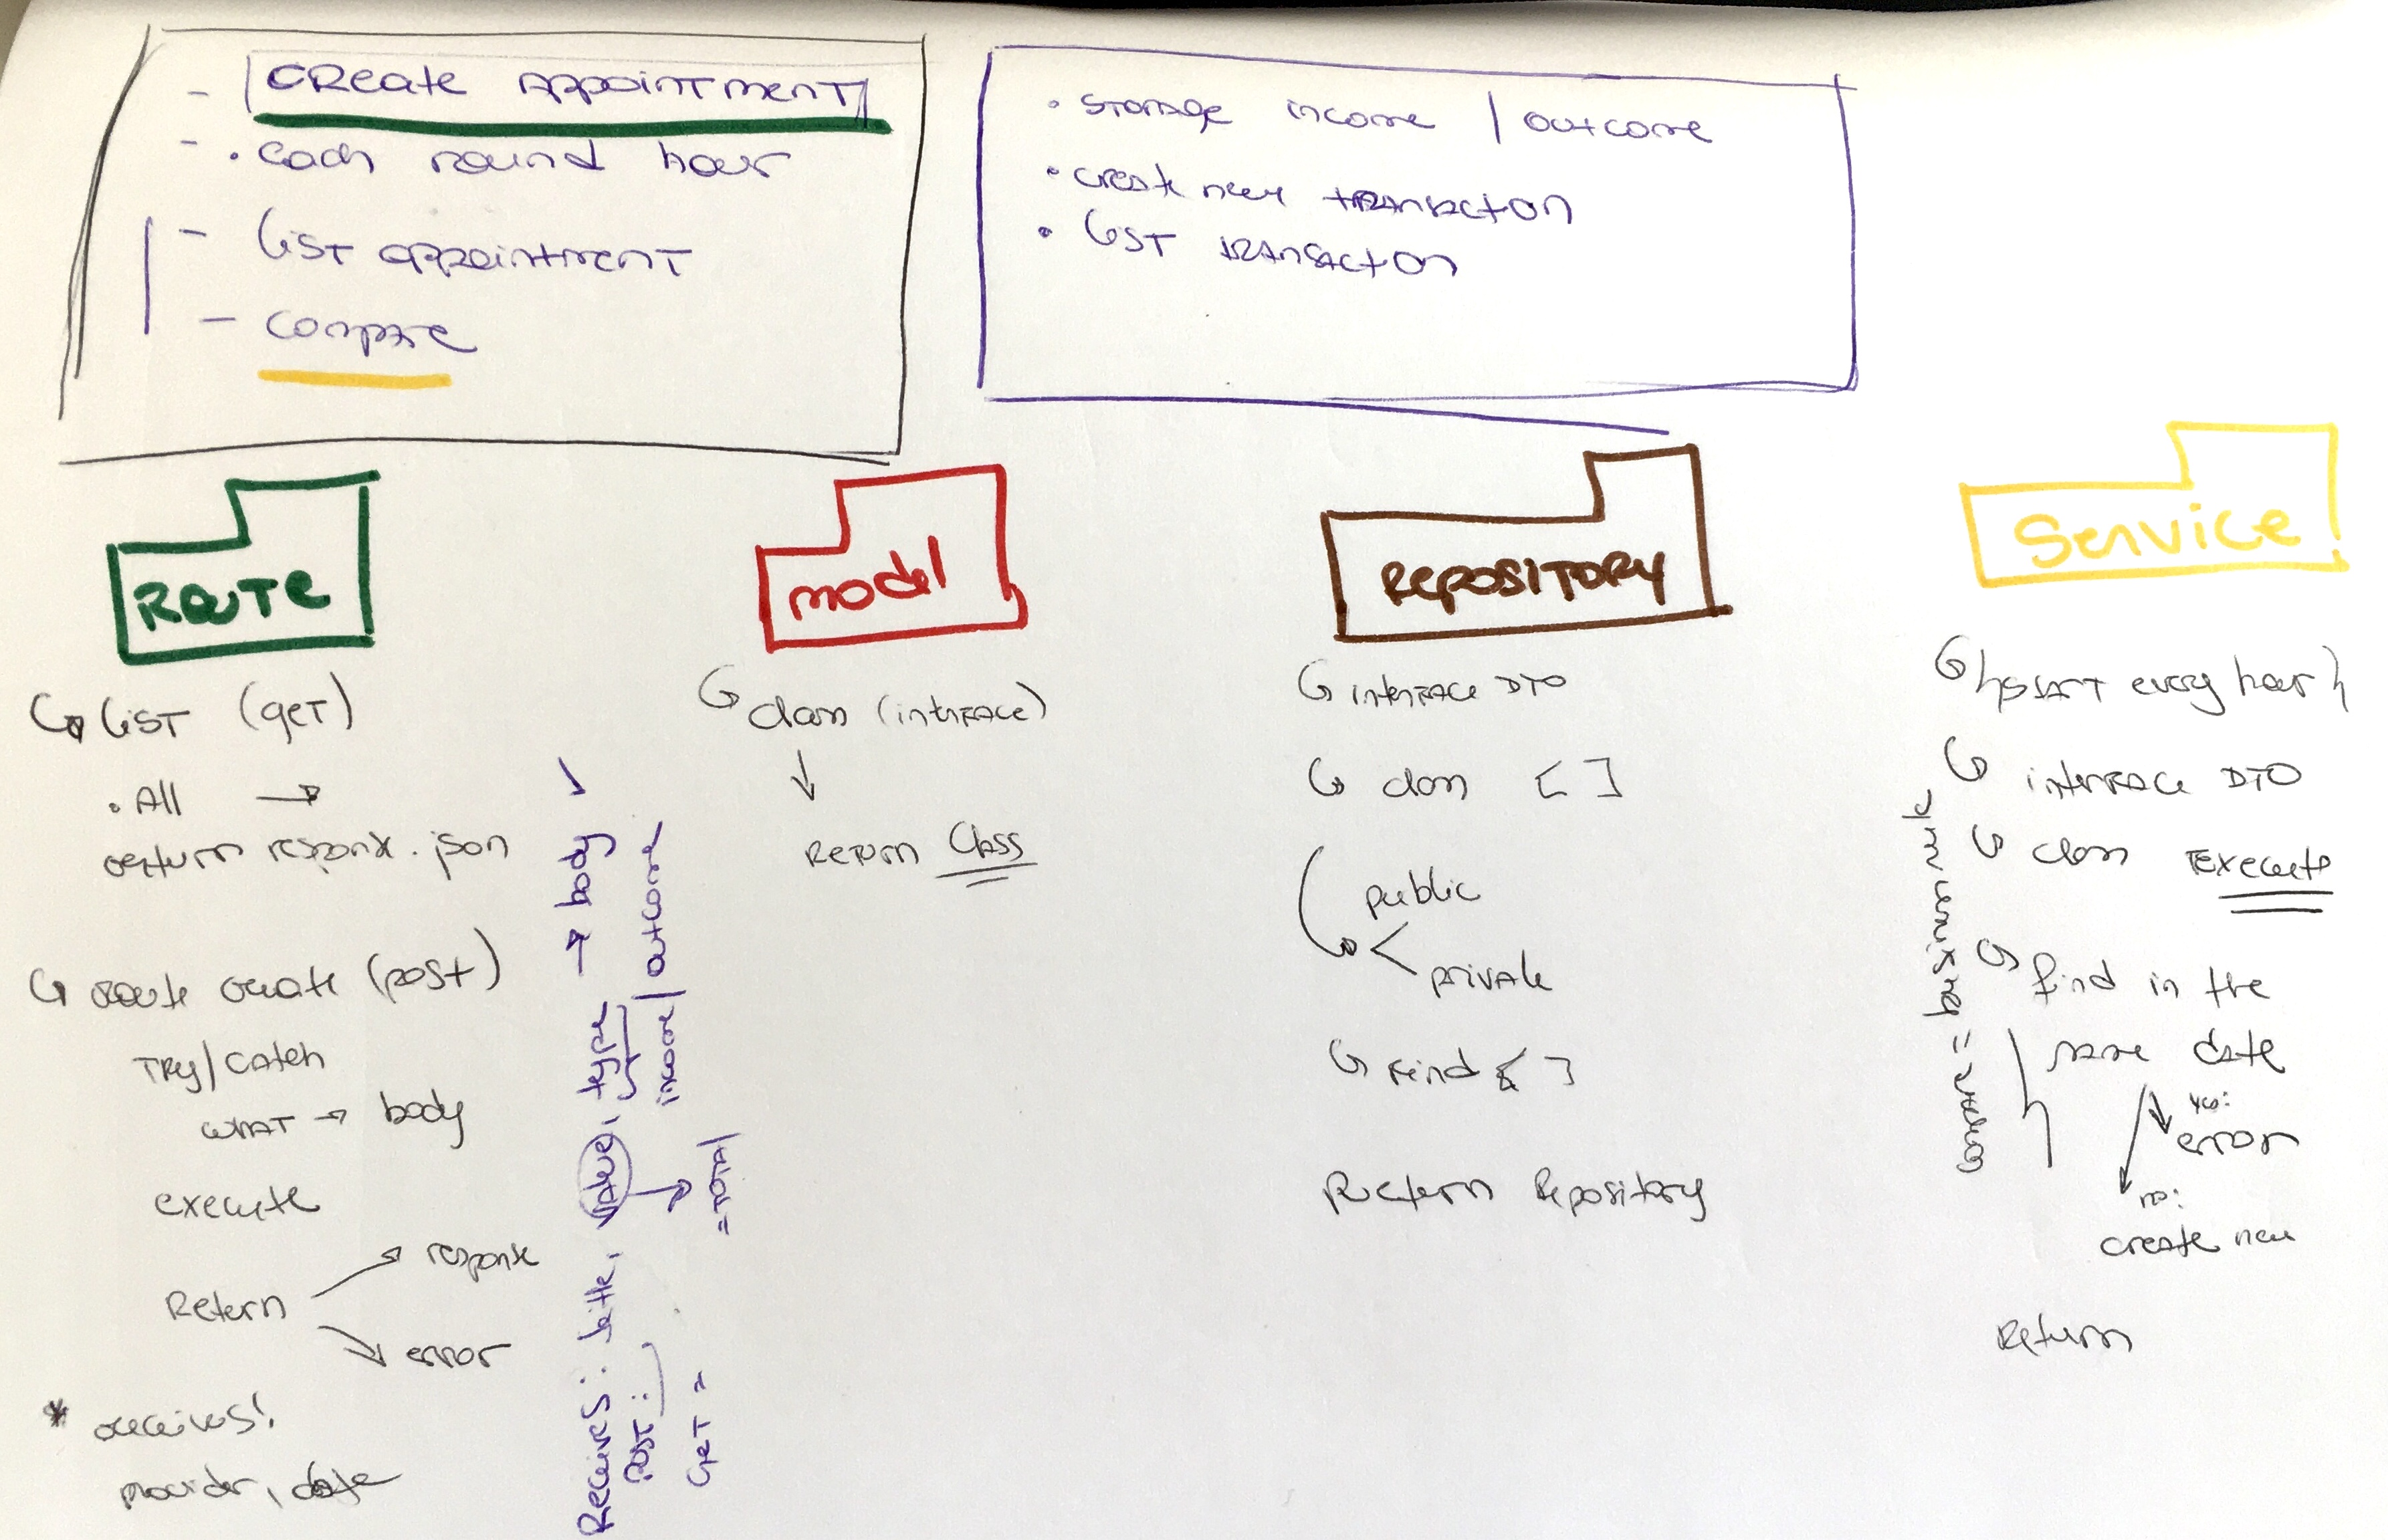 - Create Appointment
- . each round hour
- List appointment
- compare
• storage income / outcome
• create new transaction
• List transaction
Route
List (get)
. All →
return response.json
route create (post)
Try/catch
what → body
execute
Return
response
error
* receives!
provider, date
Receives: title, value, type → body ✓
income / outcome
Post:
= total
Get =
model
class (interface)
↓
Return Class
Repository
interface DTO
class [ ]
public
<
private
Find { ]
Return Repository
Service
{start every hour}
interface DTO
class Execute
find in the
same date
yes:
error
no:
create new
Return
= business rule